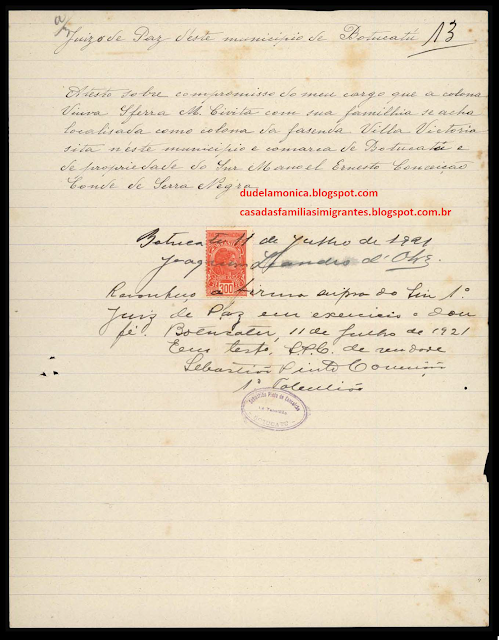 Juizo de Paz deste municipio de Botucatú 13
Attesto sobre compromisso do meu cargo que a colona
Viuva Sferra M. Civita com sua familhia se acha
localisada como colona da fasenda Villa Victoria
sita neste municipio e comarca de Botucatú e
de propriedade do Snr Manoel Ernesto Conceição
Conde de Serra Negra
dudelamonica.blogspot.com
casadasfamiliasimigrantes.blogspot.com.br
Botucatu 11 de Julho de 1921
Joaquim Leandro d'Olivª.
300
Reconheço a firma supra do Snr 1º
Juiz de Paz em exercicio e dou
fé. Botucatu, 11 de Junho de 1921
Em testº, S.P.C. da verdade
Sebastião Pinto Conceição
1º Tabellião
Sebastião Pinto da Conceição
1º Tabellião
BOTUCATU